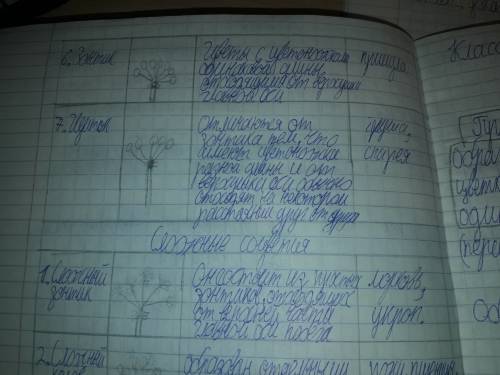 6. Зонтик
Цветы с цветоножками
одинаковой длины,
отходящими от верхушки
главной оси
примула
7. Щиток
отличаются от
зонтика тем, что
цветоножки
разной длины и от
верхушки оси обычно
отходят на некотором
расстоянии друг от друга
груша,
спирея
Сложные соцветия
1. Сложный
зонтик
Он состоит из
зонтиков, отходящих
от верхней части
главной оси побега
морковь,
укроп.
2. Сложный
колос
образован отдельными
Класс